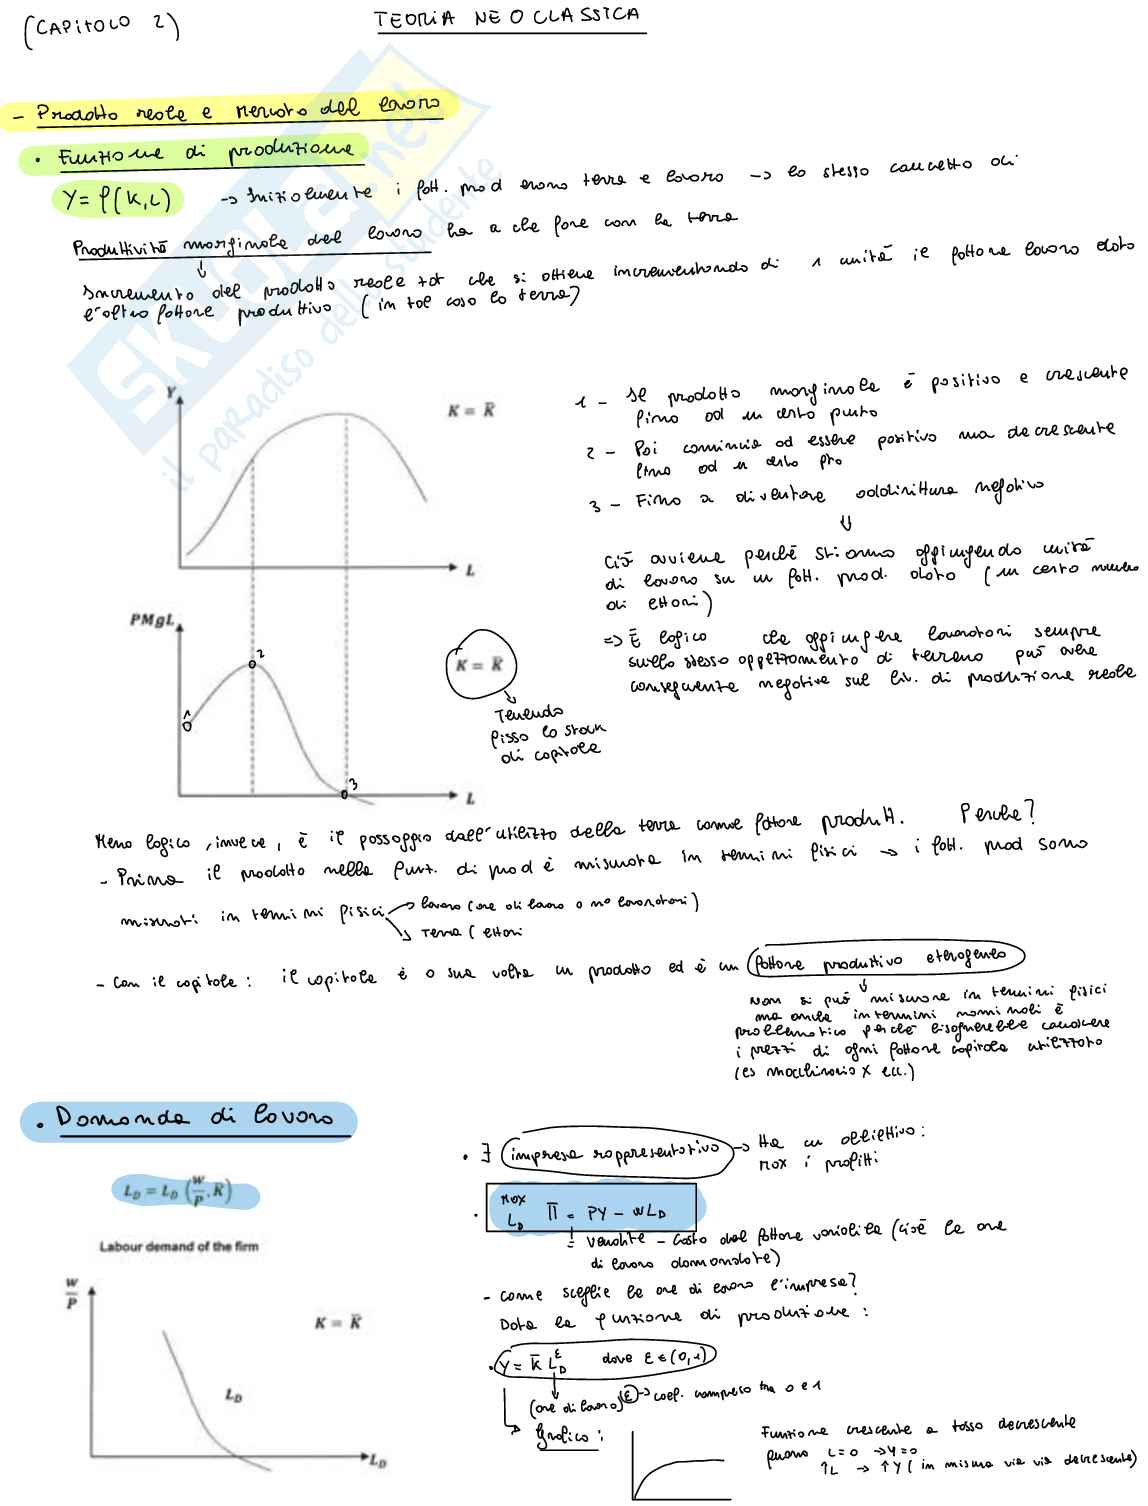 (CAPITOLO 2)
TEORIA NEOCLASSICA
- Prodotto reale e mercato del lavoro
• Funzione di produzione
Y = f(K,L) -> Inizialmente i fatt. prod erano terra e lavoro -> lo stesso concetto di
Produttività marginale del lavoro ha a che fare con la terra
↓
Incremento del prodotto reale tot che si ottiene incrementando di 1 unità il fattore lavoro dato
l'altro fattore produttivo (in tal caso la terra)
SKUOLA.net
il paradiso dello studente
Y
K = K̅
L
1 - Il prodotto marginale è positivo e crescente
fino ad un certo punto
2 - Poi comincia ad essere positivo ma decrescente
fino ad un certo pto
3 - Fino a diventare addirittura negativo
⇓
Ciò avviene perchè stiamo aggiungendo unità
di lavoro su un fatt. prod. dato (un certo numero
di ettari)
=> È logico che aggiungere lavoratori sempre
sullo stesso appezzamento di terreno può avere
conseguenze negative sul liv. di produzione reale
PMgL
1
2
3
K = K̅
L
Tenendo
fisso lo stock
di capitale
Meno logico, invece, è il passaggio dall'utilizzo della terra come fattore produtt. Perche?
- Prima il prodotto nella funz. di prod è misurata in termini fisici -> i fatt. prod sono
misurati in termini fisici -> lavoro (ore di lavoro o n° lavoratori)
-> Terra (ettari
- Con il capitale: il capitale è a sua volta un prodotto ed è un fattore produttivo eterogeneo
↓
Non si può misurare in termini fisici
ma anche in termini nominali è
problematico perchè bisognerebbe conoscere
i prezzi di ogni fattore capitale utilizzato
(es macchinario X ecc.)
• Domanda di lavoro
L_D = L_D (W/P, K̅)
Labour demand of the firm
W/P
K = K̅
L_D
L_D
• ∃ impresa rappresentativa -> Ha un obiettivo:
max i profitti
• max L_D Π = PY - WL_D
= vendite - costo del fattore variabile (cioè le ore
di lavoro domandate)
- Come sceglie le ore di lavoro l'impresa?
Data la funzione di produzione:
• Y = K̅ L_D^ε dove ε ∈ (0,1)
(ore di lavoro) ε -> coef. compreso tra 0 e 1
Grafico:
Funzione crescente a tasso decrescente
quando L=0 -> Y=0
↑L -> ↑Y (in misura via via decrescente)